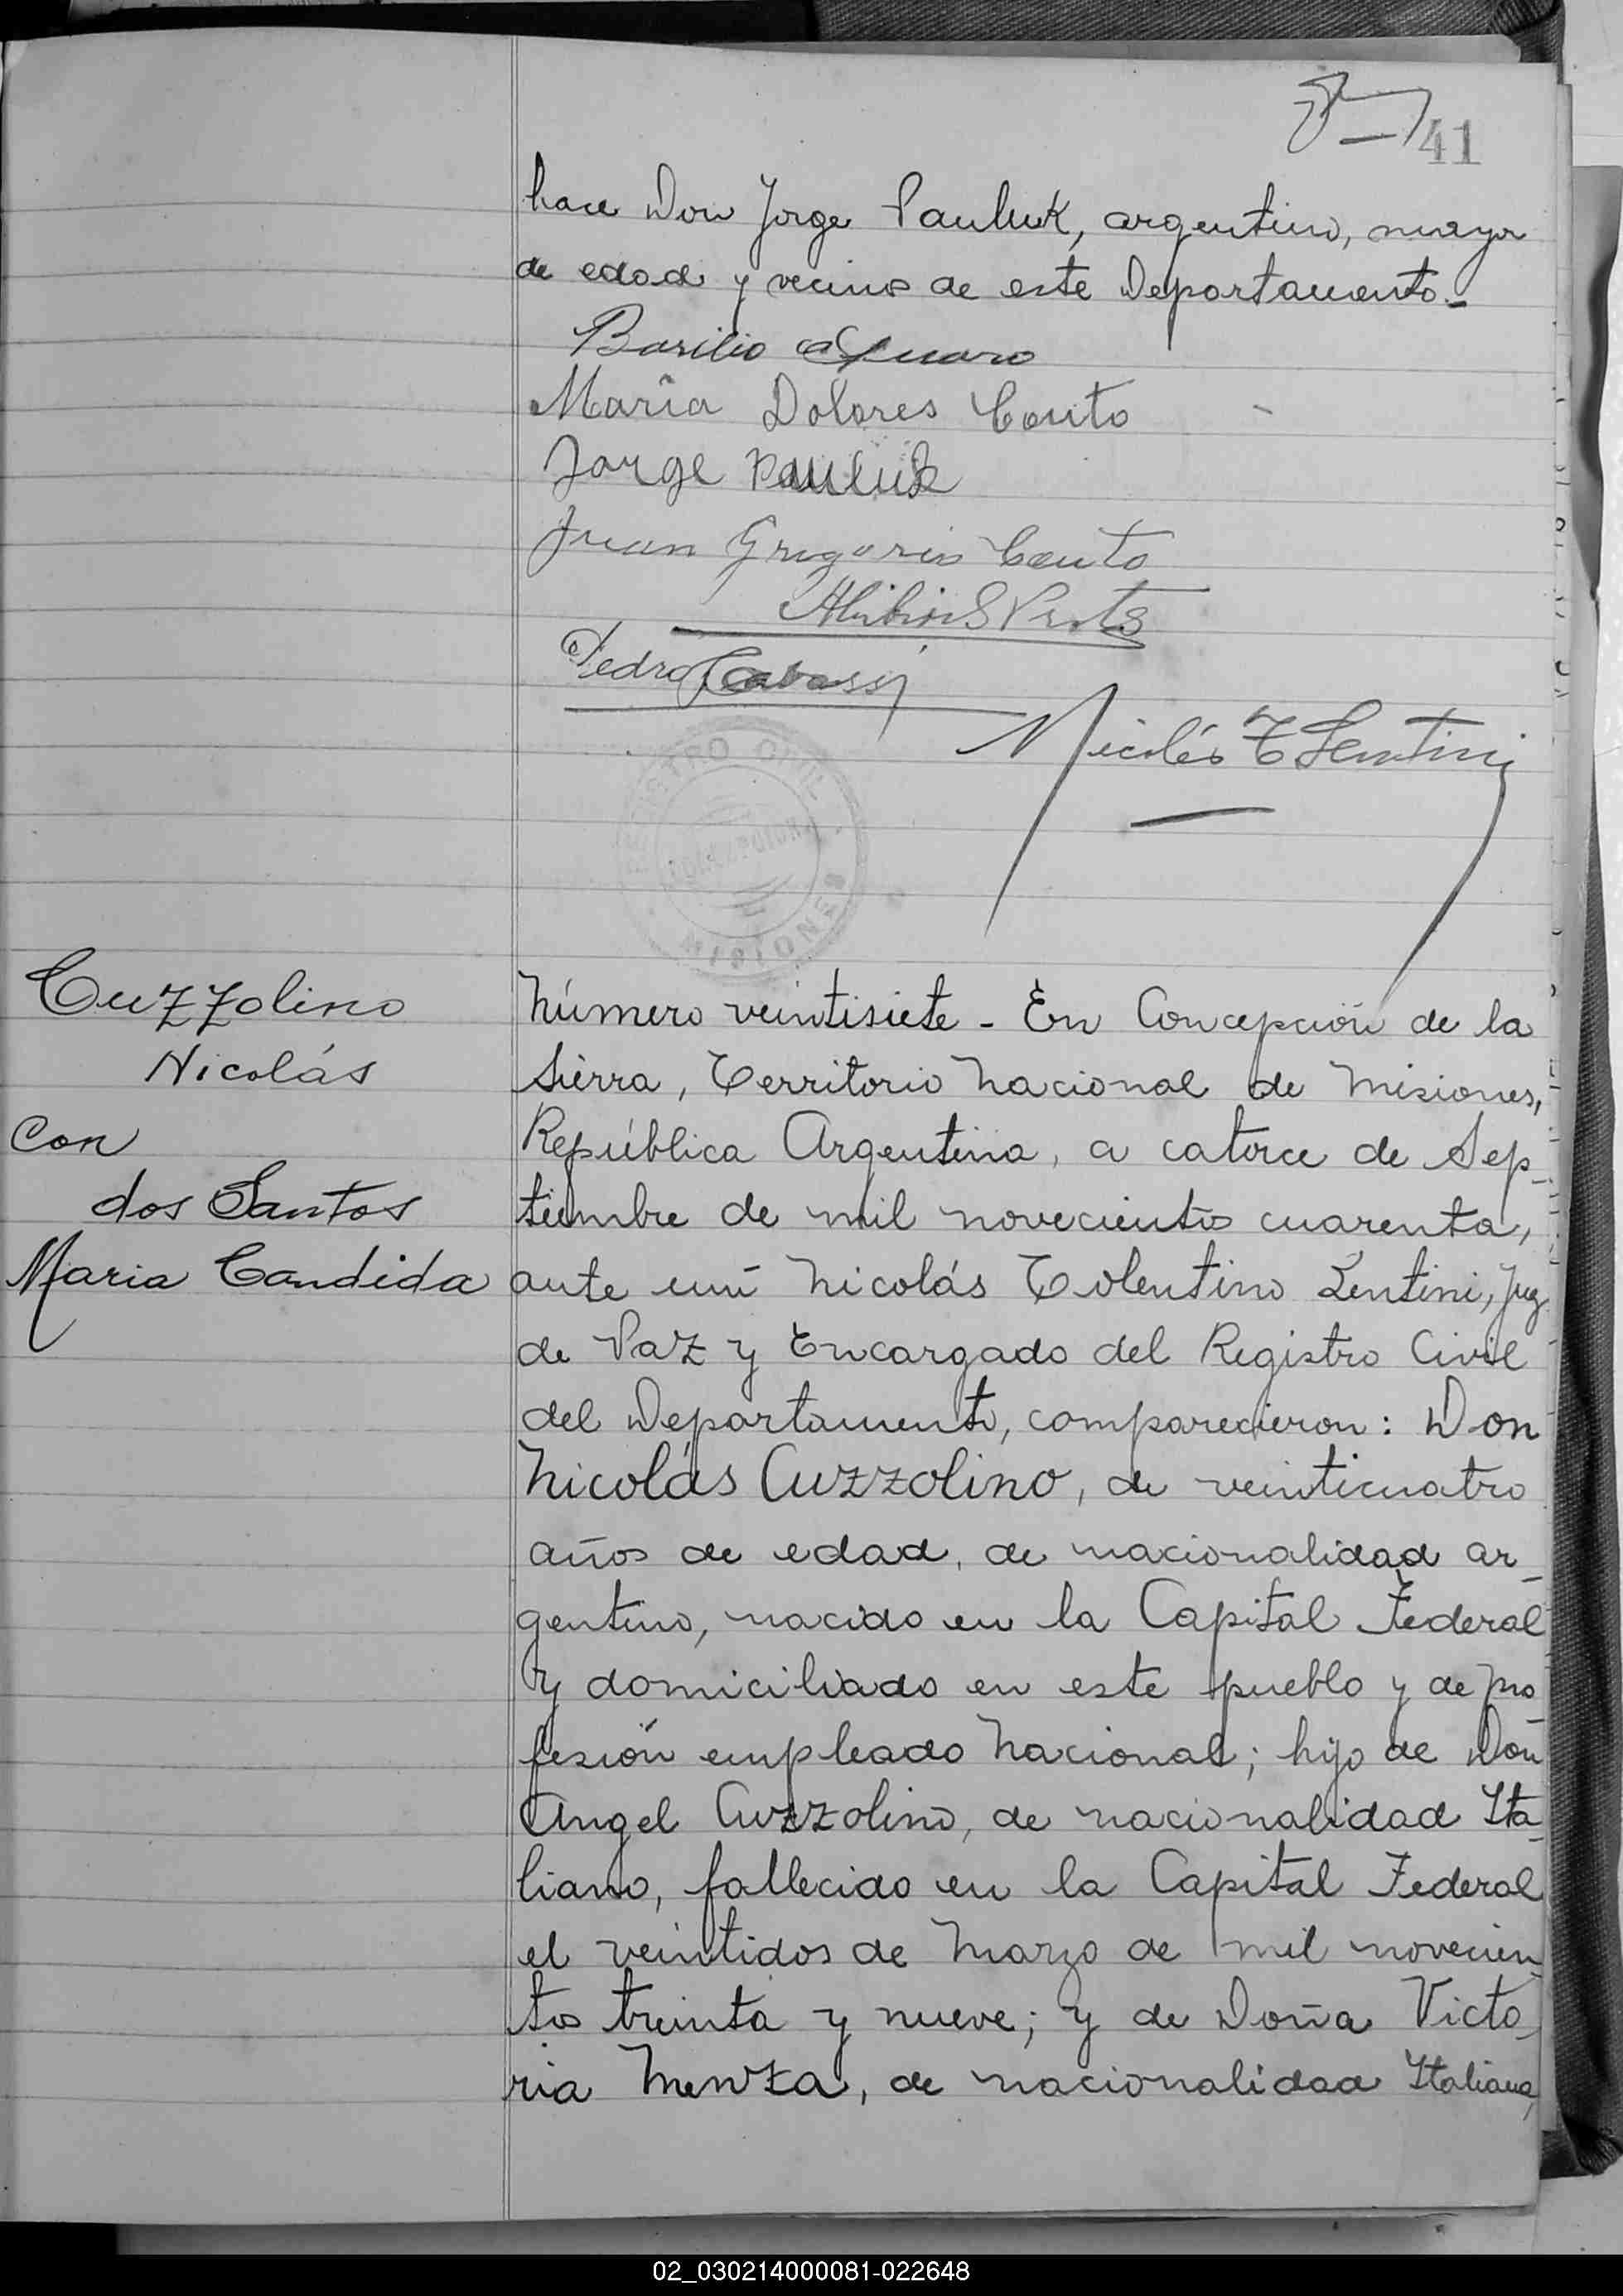 41
hace Don Jorge Pauluk, argentino, mayor
de edad y vecino de este Departamento.-
Basilio
Maria Dolores Couto
Jorge Pauluk
Juan Gregorio Couto
Pedro
Nicolás T Lentini
REGISTRO CIVIL
CONCEPCION
MISIONES
Cuzzolino
Nicolás
Con
dos Santos
Maria Candida
Número veintisiete - En Concepción de la
Sierra, Territorio Nacional de Misiones,
República Argentina, a catorce de Sep-
tiembre de mil novecientos cuarenta,
ante mi Nicolás Tolentino Lentini, Juez
de Paz y Encargado del Registro Civil
del Departamento, comparecieron: Don
Nicolás Cuzzolino, de veinticuatro
años de edad, de nacionalidad ar-
gentino, nacido en la Capital Federal
y domiciliado en este pueblo y de pro-
fesión empleado Nacional; hijo de Don
Angel Cuzzolino, de nacionalidad Ita-
liano, fallecido en la Capital Federal
el veintidos de Marzo de mil novecien-
tos treinta y nueve; y de Doña Victo-
ria Menza, de nacionalidad Italiana,
02_030214000081-022648